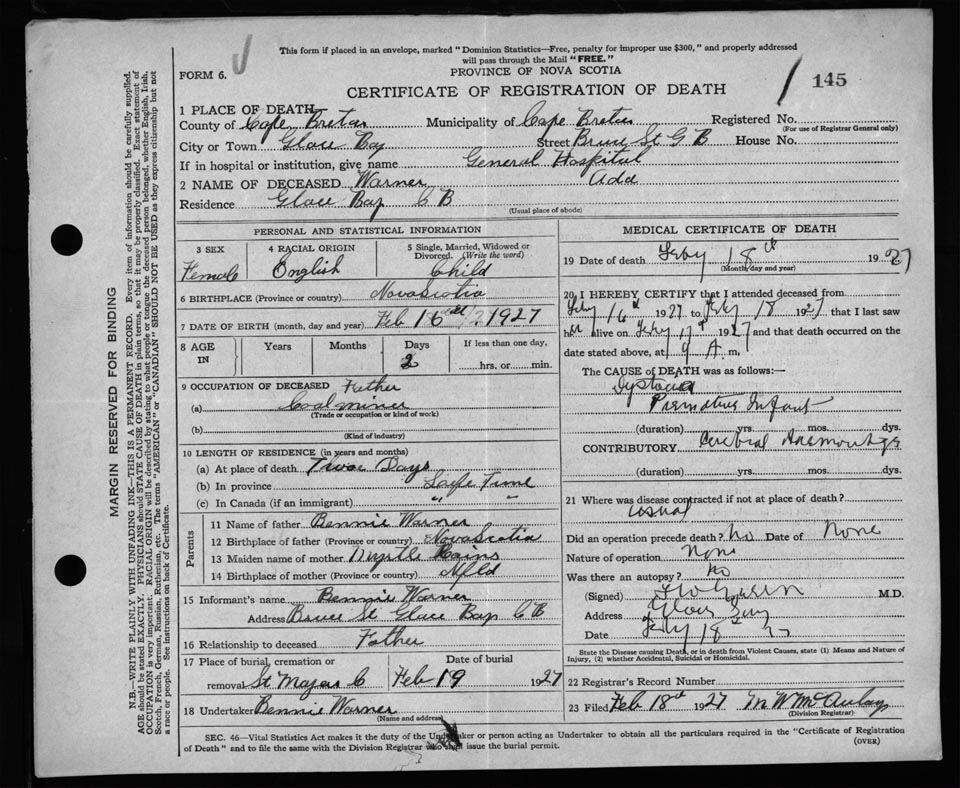 This form if placed in an envelope, marked "Dominion Statistics—Free, penalty for improper use $300," and properly addressed
will pass through the Mail "FREE."
FORM 6.
PROVINCE OF NOVA SCOTIA
CERTIFICATE OF REGISTRATION OF DEATH
145
1 PLACE OF DEATH
County of Cape Breton Municipality of Cape Breton Registered No.
(For use of Registrar General only)
City or Town Glace Bay Street Bruce St G B House No.
If in hospital or institution, give name General Hospital
2 NAME OF DECEASED Warner Ada
Residence Glace Bay C B
(Usual place of abode)
PERSONAL AND STATISTICAL INFORMATION
3 SEX Female
4 RACIAL ORIGIN English
5 Single, Married, Widowed or Divorced. (Write the word) Child
6 BIRTHPLACE (Province or country) Nova Scotia
7 DATE OF BIRTH (month, day and year) Feb 16 1927
8 AGE IN Years Months Days 2 If less than one day, hrs. or min.
9 OCCUPATION OF DECEASED Father
(a) Coal miner
(Trade or occupation or kind of work)
(b)
(Kind of industry)
10 LENGTH OF RESIDENCE (in years and months)
(a) At place of death Two Days
(b) In province Life Time
(c) In Canada (if an immigrant) " "
Parents
11 Name of father Bennie Warner
12 Birthplace of father (Province or country) Nova Scotia
13 Maiden name of mother Myrtle
14 Birthplace of mother (Province or country) Nfld
15 Informant's name Bennie Warner
Address Bruce St Glace Bay C B
16 Relationship to deceased Father
17 Place of burial, cremation or removal St C Date of burial Feb 19 1927
18 Undertaker Bennie Warner
(Name and address)
MEDICAL CERTIFICATE OF DEATH
19 Date of death Feby 18th 1927
(Month, day and year)
20 I HEREBY CERTIFY that I attended deceased from
Feby 16th 1927 to Feby 18 1927 that I last saw
her alive on Feby 17th 1927 and that death occurred on
date stated above, at 9 A. m.
The CAUSE of DEATH was as follows:—
Dystocia
Premature Infant
(duration) yrs. mos. dys.
CONTRIBUTORY Cerebral Haemorrhage
(duration) yrs. mos. dys.
21 Where was disease contracted if not at place of death?
usual
Did an operation precede death? No Date of None
Nature of operation None
Was there an autopsy? No
(Signed) M.D.
Address Glace Bay
Date Feby 18 27
State the Disease causing Death, or in death from Violent Causes, state (1) Means and Nature of
Injury, (2) whether Accidental, Suicidal or Homicidal.
22 Registrar's Record Number
23 Filed Feb 18th 1927 M W McAulay
(Division Registrar)
SEC. 46—Vital Statistics Act makes it the duty of the Undertaker or person acting as Undertaker to obtain all the particulars required in the "Certificate of Registration
of Death" and to file the same with the Division Registrar who shall issue the burial permit.
(OVER)
MARGIN RESERVED FOR BINDING
N.B.—WRITE PLAINLY WITH UNFADING INK—THIS IS A PERMANENT RECORD. Every item of information should be carefully supplied.
AGE should be stated EXACTLY. PHYSICIANS should STATE CAUSE OF DEATH in plain terms, so that it may be properly classified. Exact statement of
OCCUPATION is very important. RACIAL ORIGIN will be described by stating to what people or tongue the deceased person belonged, whether English, Irish,
Scotch, French, German, Russian, Ruthenian, etc. The terms "AMERICAN" or "CANADIAN" SHOULD NOT BE USED as they express citizenship but not
a race or people. See instructions on back of Certificate.